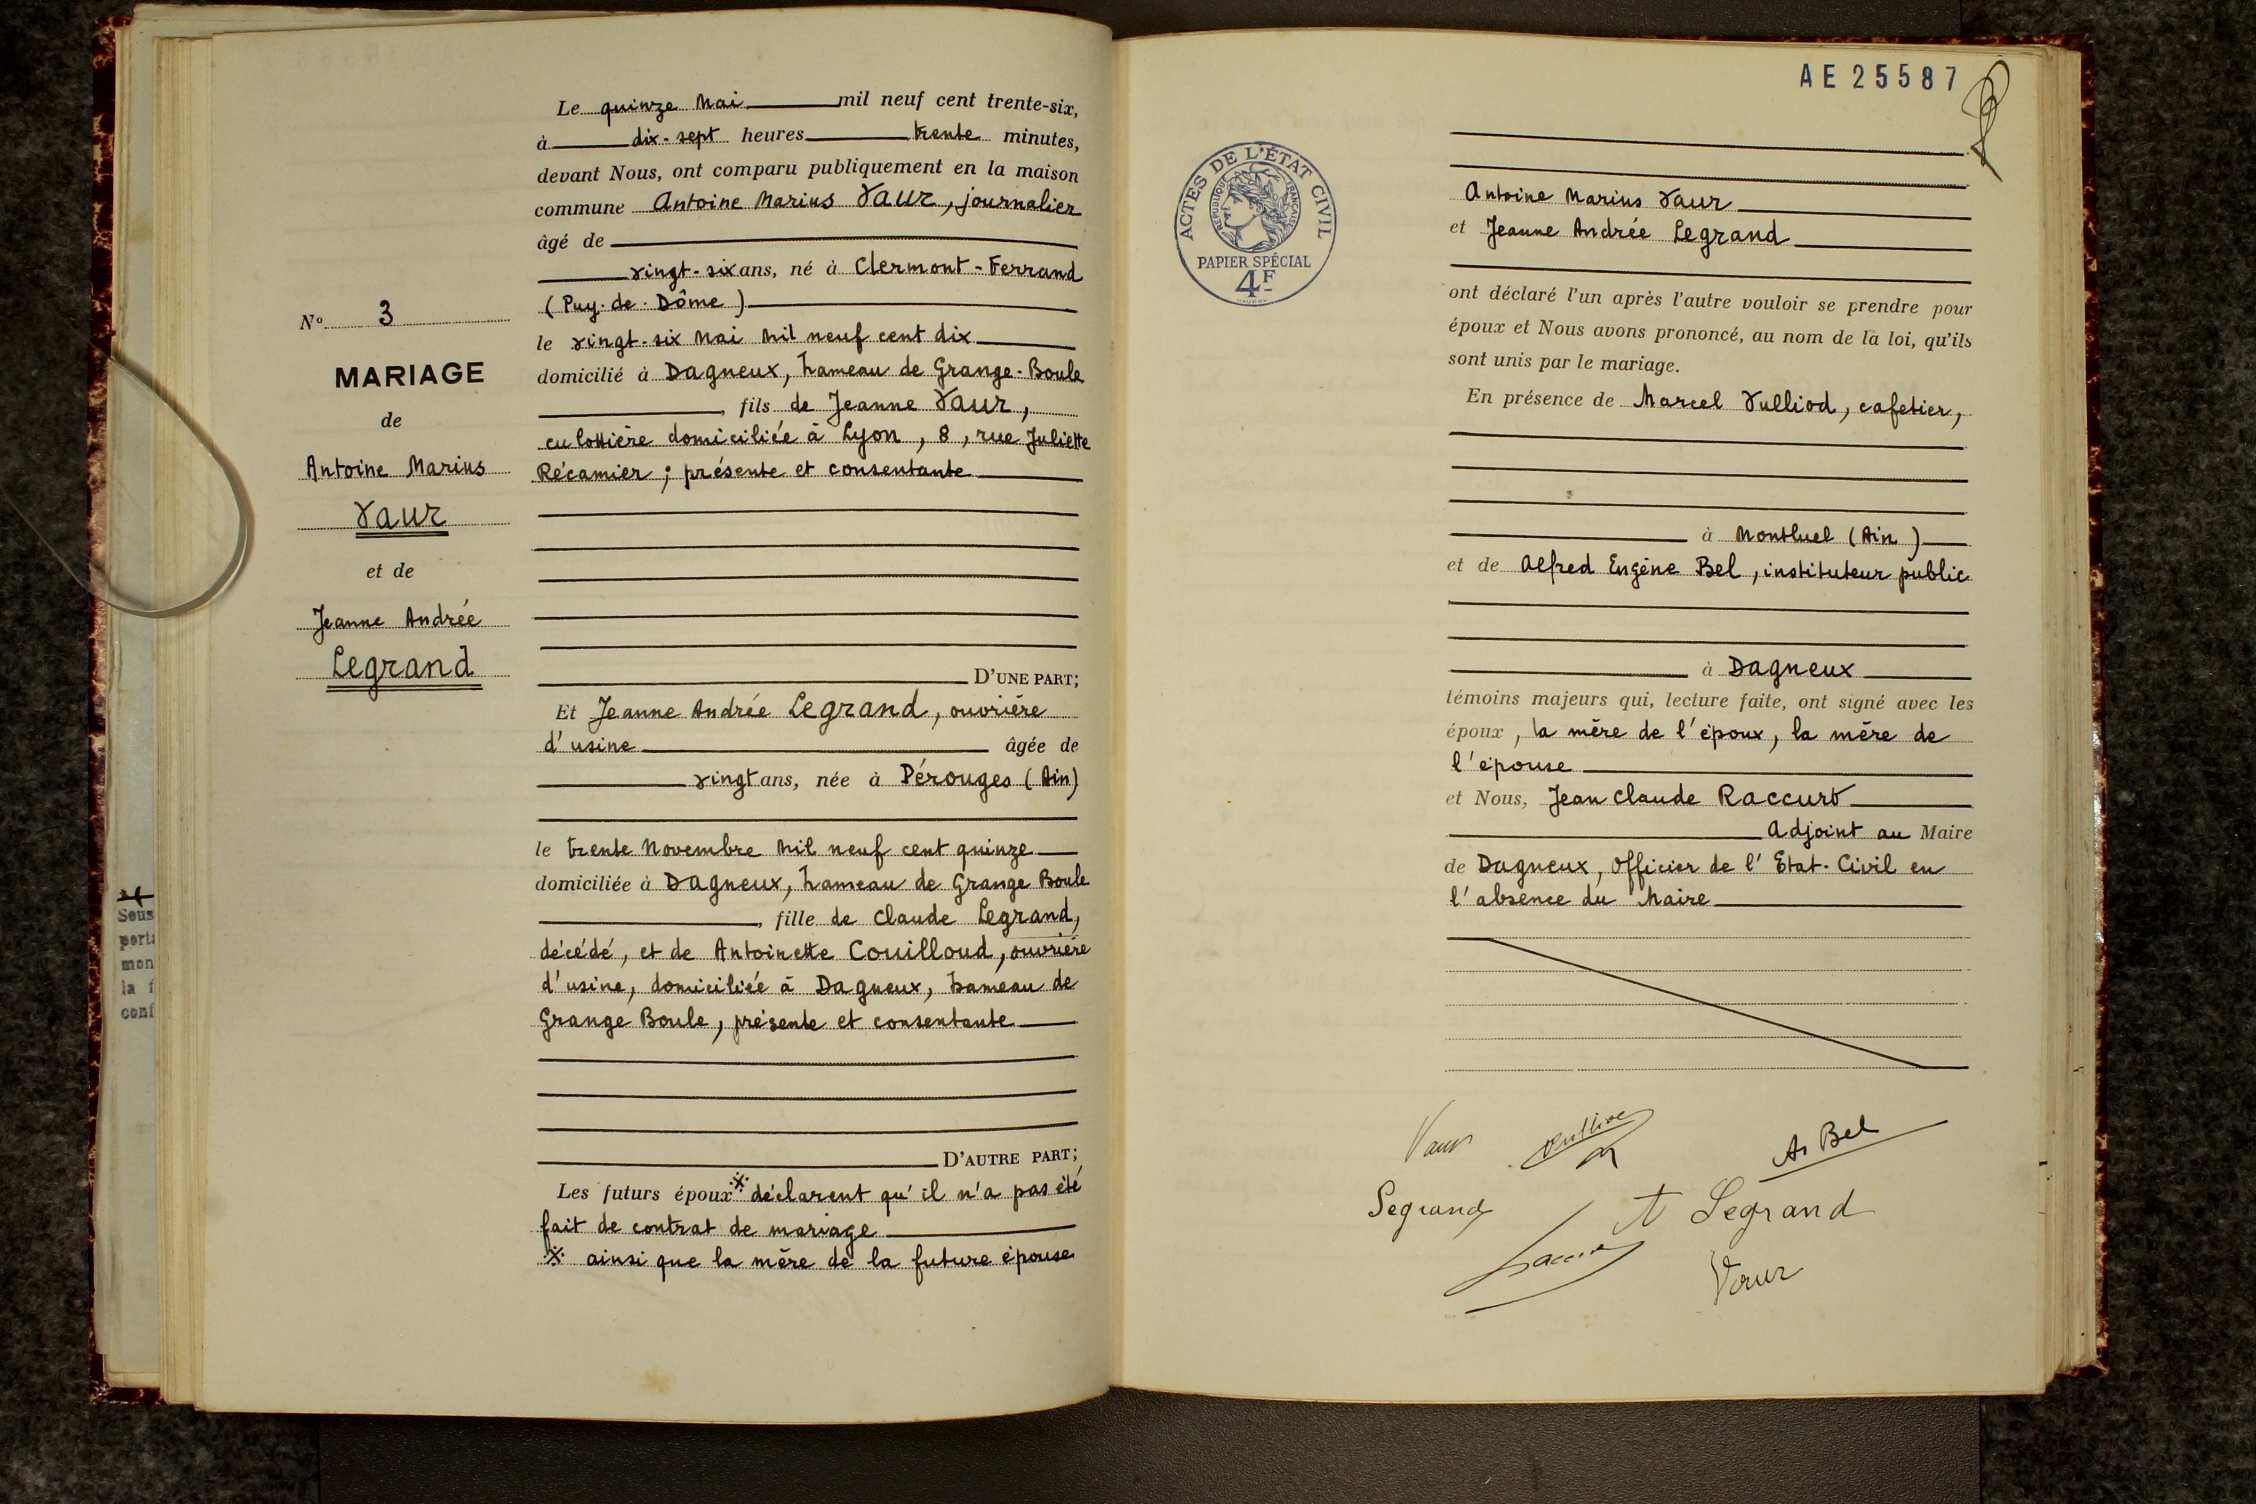 Le quinze Mai mil neuf cent trente-six,
à dix-sept heures trente minutes,
devant Nous, ont comparu publiquement en la maison
commune Antoine Marius VAUR, journalier
âgé de
vingt-six ans, né à Clermont-Ferrand
(Puy-de-Dôme)
le vingt-six Mai Mil neuf cent dix
domicilié à Dagneux, hameau de Grange-Boule
, fils de Jeanne VAUR,
culottière domiciliée à Lyon, 8, rue Juliette
Récamier ; présente et consentante
D'UNE PART;
Et Jeanne Andrée Legrand, ouvrière
d'usine âgée de
vingt ans, née à Pérouges (Ain)
le trente Novembre Mil neuf cent quinze
domiciliée à Dagneux, hameau de Grange Boule
, fille de Claude Legrand,
décédé, et de Antoinette Couilloud, ouvrière
d'usine, domiciliée à Dagneux, hameau de
Grange Boule, présente et consentante
D'AUTRE PART;
Les futurs époux ※ déclarent qu'il n'a pas été
fait de contrat de mariage
※ ainsi que la mère de la future épouse
No 3
MARIAGE
de
Antoine Marius
Vaur
et de
Jeanne Andrée
Legrand
Sous
mon
la f
conf
AE 25587
ACTES DE L'ÉTAT CIVIL
RÉPUBLIQUE FRANÇAISE
PAPIER SPÉCIAL
4F
Antoine Marius Vaur
et Jeanne Andrée Legrand
ont déclaré l'un après l'autre vouloir se prendre pour
époux et Nous avons prononcé, au nom de la loi, qu'ils
sont unis par le mariage.
En présence de Marcel Vulliod, cafetier,
à Montluel (Ain)
et de Alfred Eugène Bel, instituteur public
à Dagneux
témoins majeurs qui, lecture faite, ont signé avec les
époux, la mère de l'époux, la mère de
l'épouse
et Nous, Jean Claude Raccurt
Adjoint au Maire
de Dagneux, Officier de l'Etat-Civil en
l'absence du Maire
Vaur
A Bel
Legrand
A Legrand
Vaur